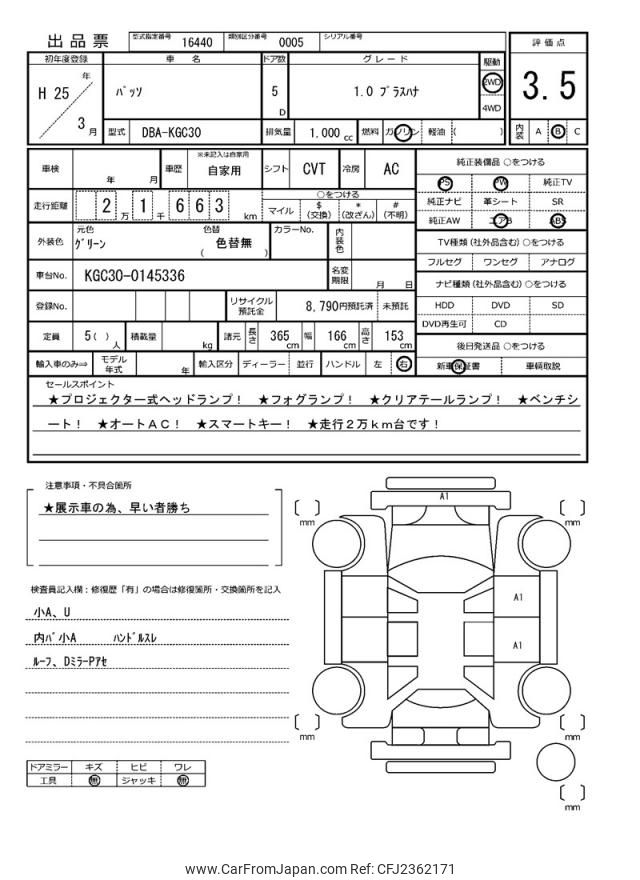 出品票
型式指定番号 16440 類別区分番号 0005 シリアル番号
評価点
3.5
内装 A B C
初年度登録 車名 ドア数 グレード 駆動
H 25 年 3 月
パッソ 5 D 1.0 プラスハナ
2WD
4WD
型式 DBA-KGC30 排気量 1,000 cc 燃料 ガソリン 軽油 ( )
車検 年 月 車歴 ※未記入は自家用 自家用 シフト CVT 冷房 AC
走行距離 2 万 1 千 6 6 3 km
○をつける
マイル $ (交換) * (改ざん) # (不明)
外装色 元色 グリーン 色替 色替無 ( ) カラーNo. 内装色
車台No. KGC30-0145336 名変期限 月 日
登録No. リサイクル預託金 8,790円預託済 未預託
定員 5( ) 人 積載量 kg 諸元 長さ 365 cm 幅 166 cm 高さ 153 cm
輸入車のみ⇒ モデル年式 年 輸入区分 ディーラー 並行 ハンドル 左 右
純正装備品 ○をつける
PS PW 純正TV
純正ナビ 革シート SR
純正AW エアB ABS
TV種類 (社外品含む) ○をつける
フルセグ ワンセグ アナログ
ナビ種類 (社外品含む) ○をつける
HDD DVD SD
DVD再生可 CD
後日発送品 ○をつける
新車保証書 車輌取説
セールスポイント
★プロジェクター式ヘッドランプ! ★フォグランプ! ★クリアテールランプ! ★ベンチシ
ート! ★オートAC! ★スマートキー! ★走行2万km台です!
注意事項・不具合箇所
★展示車の為、早い者勝ち
検査員記入欄:修復歴「有」の場合は修復箇所・交換箇所を記入
小A、U
内バ小A ハンドルスレ
ルーフ、DミラーPアセ
ドアミラー キズ ヒビ ワレ
工具 無 ジャッキ 無
A1
A1
A1
mm
mm
mm
mm
mm
www.CarFromJapan.com Ref: CFJ2362171